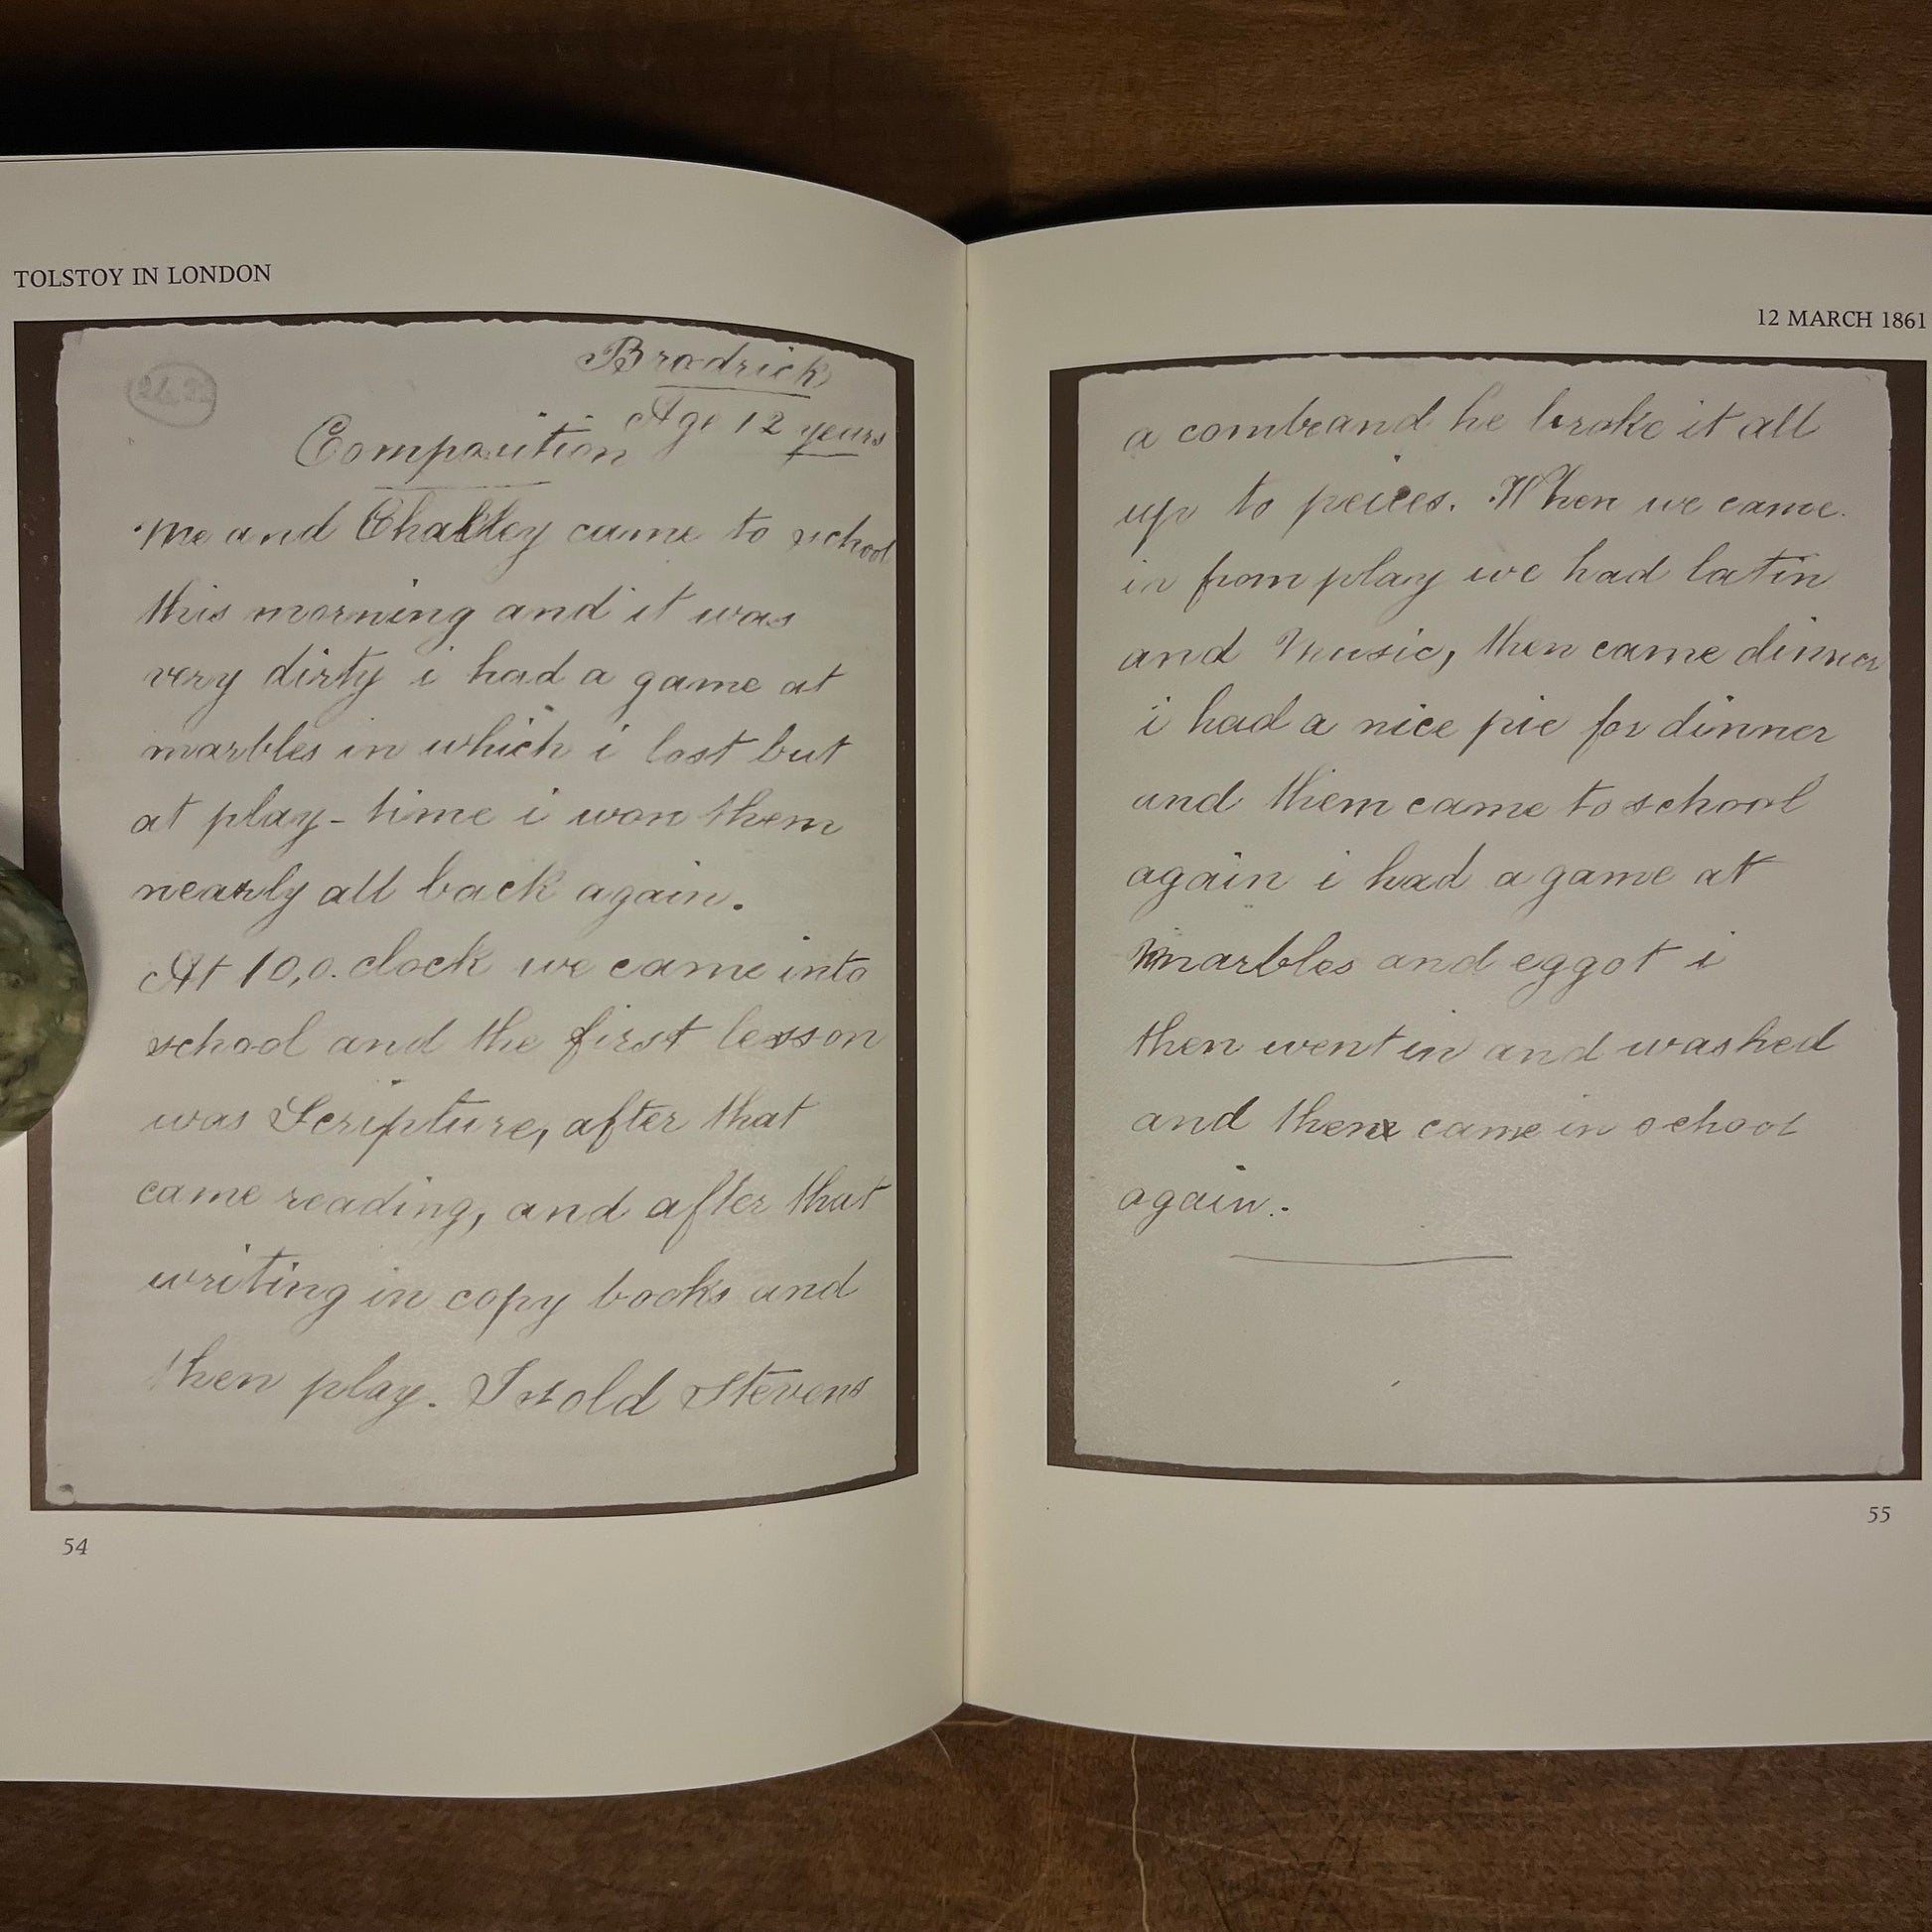 TOLSTOY IN LONDON
Brodrick
Age 12 years
Composition
Me and Chalkley came to school
this morning and it was
very dirty i had a game at
marbles in which i lost but
at play-time i won them
nearly all back again.
At 10,o. clock we came into
school and the first lesson
was Scripture, after that
came reading, and after that
writing in copy books and
then play. I sold Stevens
54
12 MARCH 1861
a combe and he broke it all
up to peices. When we came
in from play we had latin
and Music, then came dinner
i had a nice pie for dinner
and them came to school
again i had a game at
marbles and eggot i
then went in and washed
and then came in school
again.
55